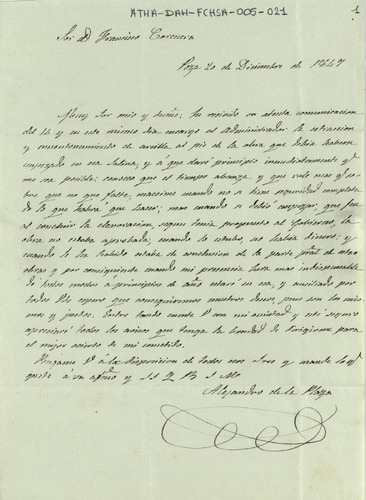 ATHA-DAH-FCHSA-005-021
1
Sor. D. Francisco Corcuera
Poza 20 de Diciembre de 1847
Muy Sor mio y dueño: he recivido su atenta comunicacion
del 14 y en este mismo dia encargo al Administrador la estraccion
y amontonamiento de arcilla al pie de la obra que debia haberse
empezado en esa Salina, y á que daré principio inmediatamente qe.
me sea posible: conozco que el tiempo abanza y que vale mas qe. so-
bre que no que falte, maxime cuando no se tiene seguridad completa
de lo que habrá que hacer; mas cuando se debió empezar, que fue
al concluir la elavoracion, segun tenia propuesto al Gobierno, la
obra no estaba aprobada; cuando lo estubo, no habia dinero; y
cuando lo ha habido estaba de conclusion de la parte pral. de otras
obras y por consiguiente cuando mi presencia era mas indispensable
de todos modos a principios de año estaré en esa, y ausiliado por
todos Vds espero que conseguiremos nuestros deseos, pues son los mis-
mos y justos. Entre tanto cuente V. con mi amistad y esté seguro
apreciaré todos los avisos que tenga la bondad de dirigirme para
el mejor acierto de mi cometido.
Pongame V. á la disposicion de todos esos Sres y mande lo qe.
guste á su afmo. y S. S. Q. B. S. Mo.
Alejandro de la Plaza